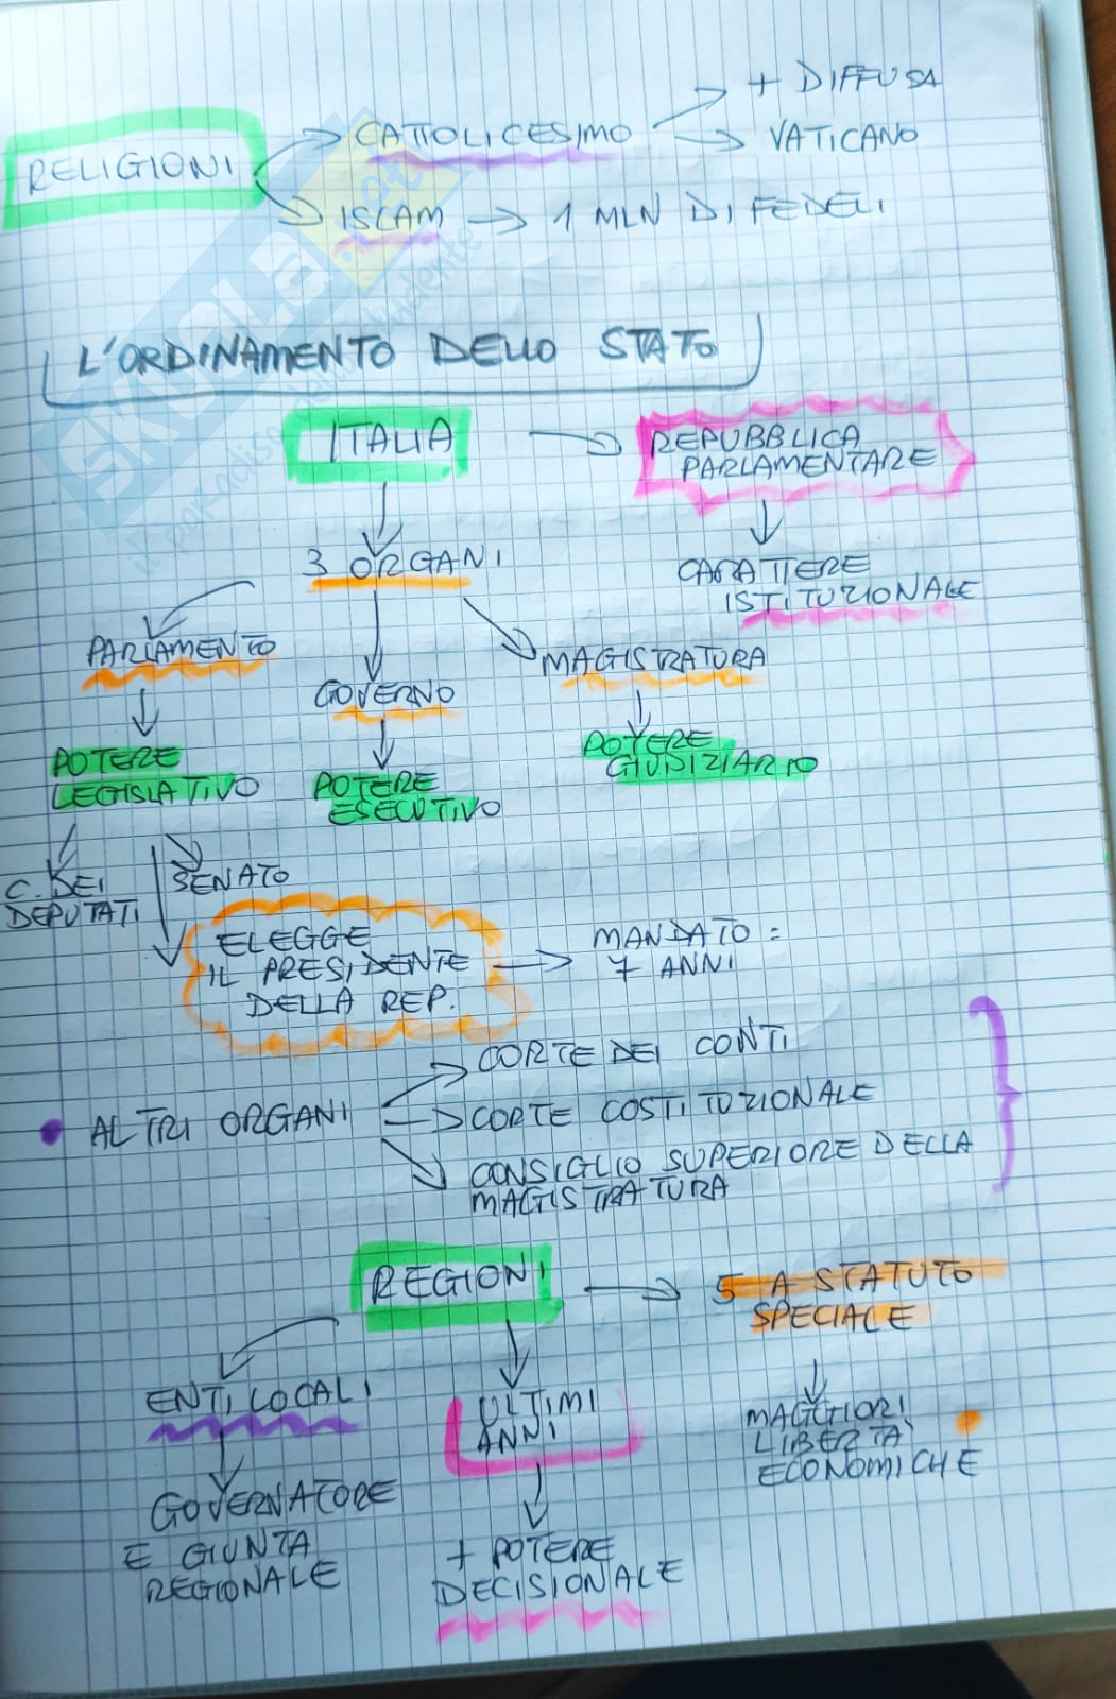 RELIGIONI
CATTOLICESIMO
+ DIFFUSA
VATICANO
ISLAM → 1 MLN DI FEDELI
L'ORDINAMENTO DELLO STATO
ITALIA
REPUBBLICA
PARLAMENTARE
CARATTERE
ISTITUZIONALE
3 ORGANI
PARLAMENTO
GOVERNO
MAGISTRATURA
POTERE
LEGISLATIVO
POTERE
ESECUTIVO
POTERE
GIUDIZIARIO
C. DEI
DEPUTATI
SENATO
ELEGGE
IL PRESIDENTE
DELLA REP.
MANDATO =
7 ANNI
• ALTRI ORGANI
CORTE DEI CONTI
CORTE COSTITUZIONALE
CONSIGLIO SUPERIORE DELLA
MAGISTRATURA
REGIONI
5 A STATUTO
SPECIALE
ENTI LOCALI
GOVERNATORE
E GIUNTA
REGIONALE
ULTIMI
ANNI
+ POTERE
DECISIONALE
MAGGIORI
LIBERTÀ
ECONOMICHE
SKUOLA.net